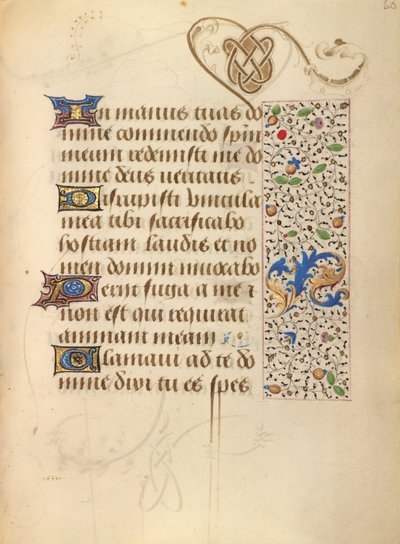 In manus tuas do
mine commendo spm
meum redemisti me do
mine deus veritatis
Disrupisti vincula
mea tibi sacrificabo
hostiam laudis et no
men domini invocabo
Periit fuga a me et
non est qui requirat
animam meam
Clamavi ad te do
mine dixi tu es spes